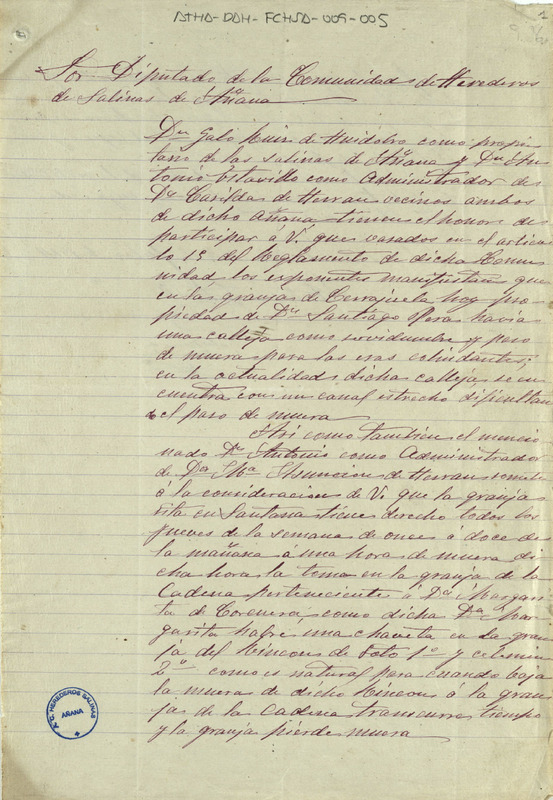 ATHA-DAH-FCHSA-009-005
Sor. Diputado de la Comunidad de Herederos
de Salinas de Añana
Dn Galo Ruiz de Huidobro como propie
tario de las salinas de Añana y Dn An
tonio Estavillo como Administrador de
Da Casilda de Herran vecinos ambos
de dicho Añana tienen el honor de
participar á V. que basados en el articu
lo 19 del Reglamento de dicha Comu
nidad, los exponentes manifiestan que
en las granjas de Terrazuela hoy pro
piedad de Dn Santiago Pera havia
una calleja como servidumbre y paso
de muera para las eras colindantes;
en la actualidad dicha calleja se en
cuentra con un canal estrecho dificultan
do el paso de muera
Asi como tambien el mencio
nado Dn Antonio como Administrador
de Da Ma Asuncion de Herran somete
á la consideracion de V. que la granja
sita en Santana tiene derecho todos los
jueves de la semana de once á doce de
la mañana á una hora de muera di
cha hora la toma en la granja de la
Cadena perteneciente á Da Marga
rita de Corcuera, como dicha Da Mar
garita habre una chaveta en la gran
ja del Rincon de boto 1o y celemin
2o como es natural para cuando baja
la muera de dicho Rincon á la gran
ja de la Cadena transcurre tiempo
y la granja pierde muera
A. C. HEREDEROS SALINAS
AÑANA